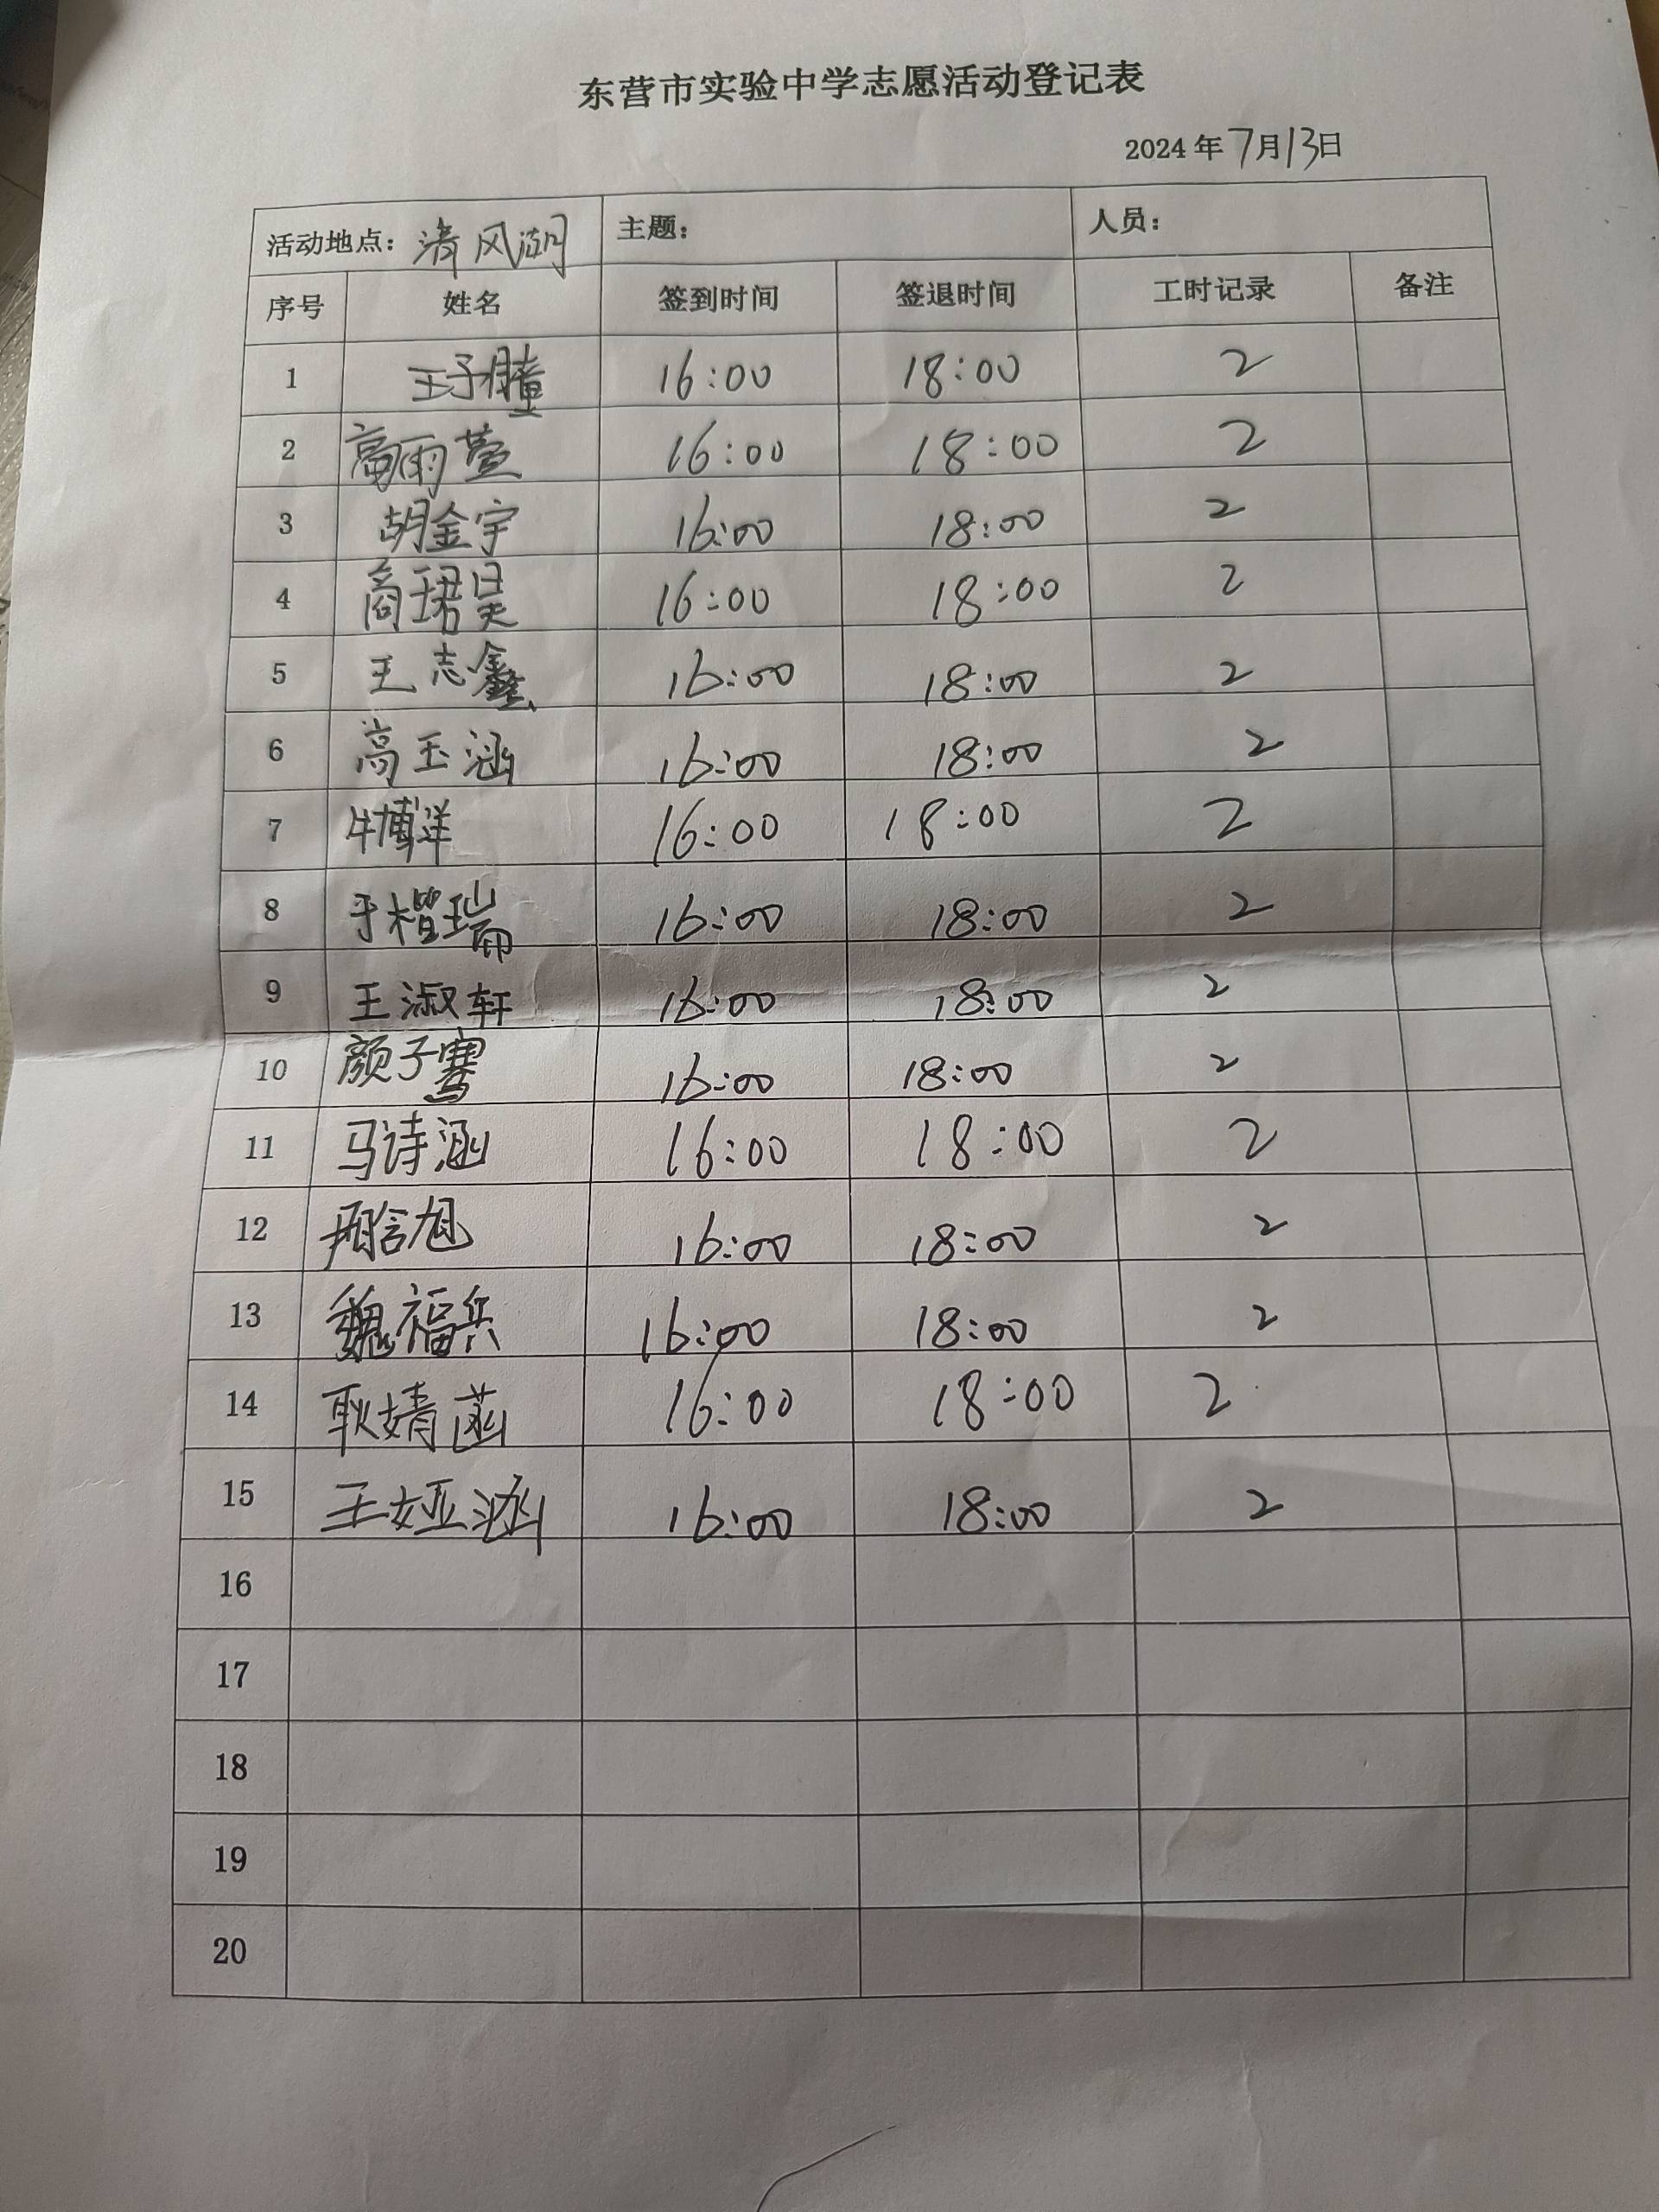 东营市实验中学志愿活动登记表
2024年7月13日
活动地点：清风湖 主题： 人员：
序号 姓名 签到时间 签退时间 工时记录 备注
1 王子朣 16:00 18:00 2
2 高雨萱 16:00 18:00 2
3 胡金宇 16:00 18:00 2
4 商珺昊 16:00 18:00 2
5 王志鑫 16:00 18:00 2
6 高玉涵 16:00 18:00 2
7 牛博洋 16:00 18:00 2
8 于楷瑞 16:00 18:00 2
9 王淑轩 16:00 18:00 2
10 颜子骞 16:00 18:00 2
11 马诗涵 16:00 18:00 2
12 16:00 18:00 2
13 魏福兵 16:00 18:00 2
14 耿婧菡 16:00 18:00 2
15 王娅涵 16:00 18:00 2
16
17
18
19
20